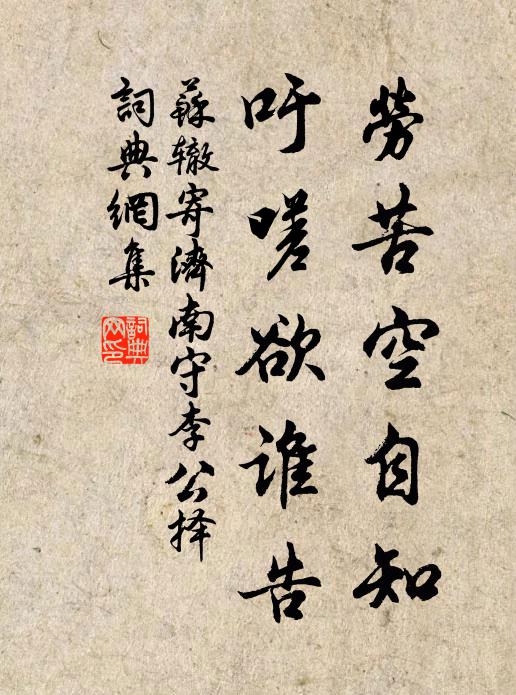 勞苦空自知
吁嗟欲誰告
蘇辙寄濟南守李公择
詞典網集
詞典網印